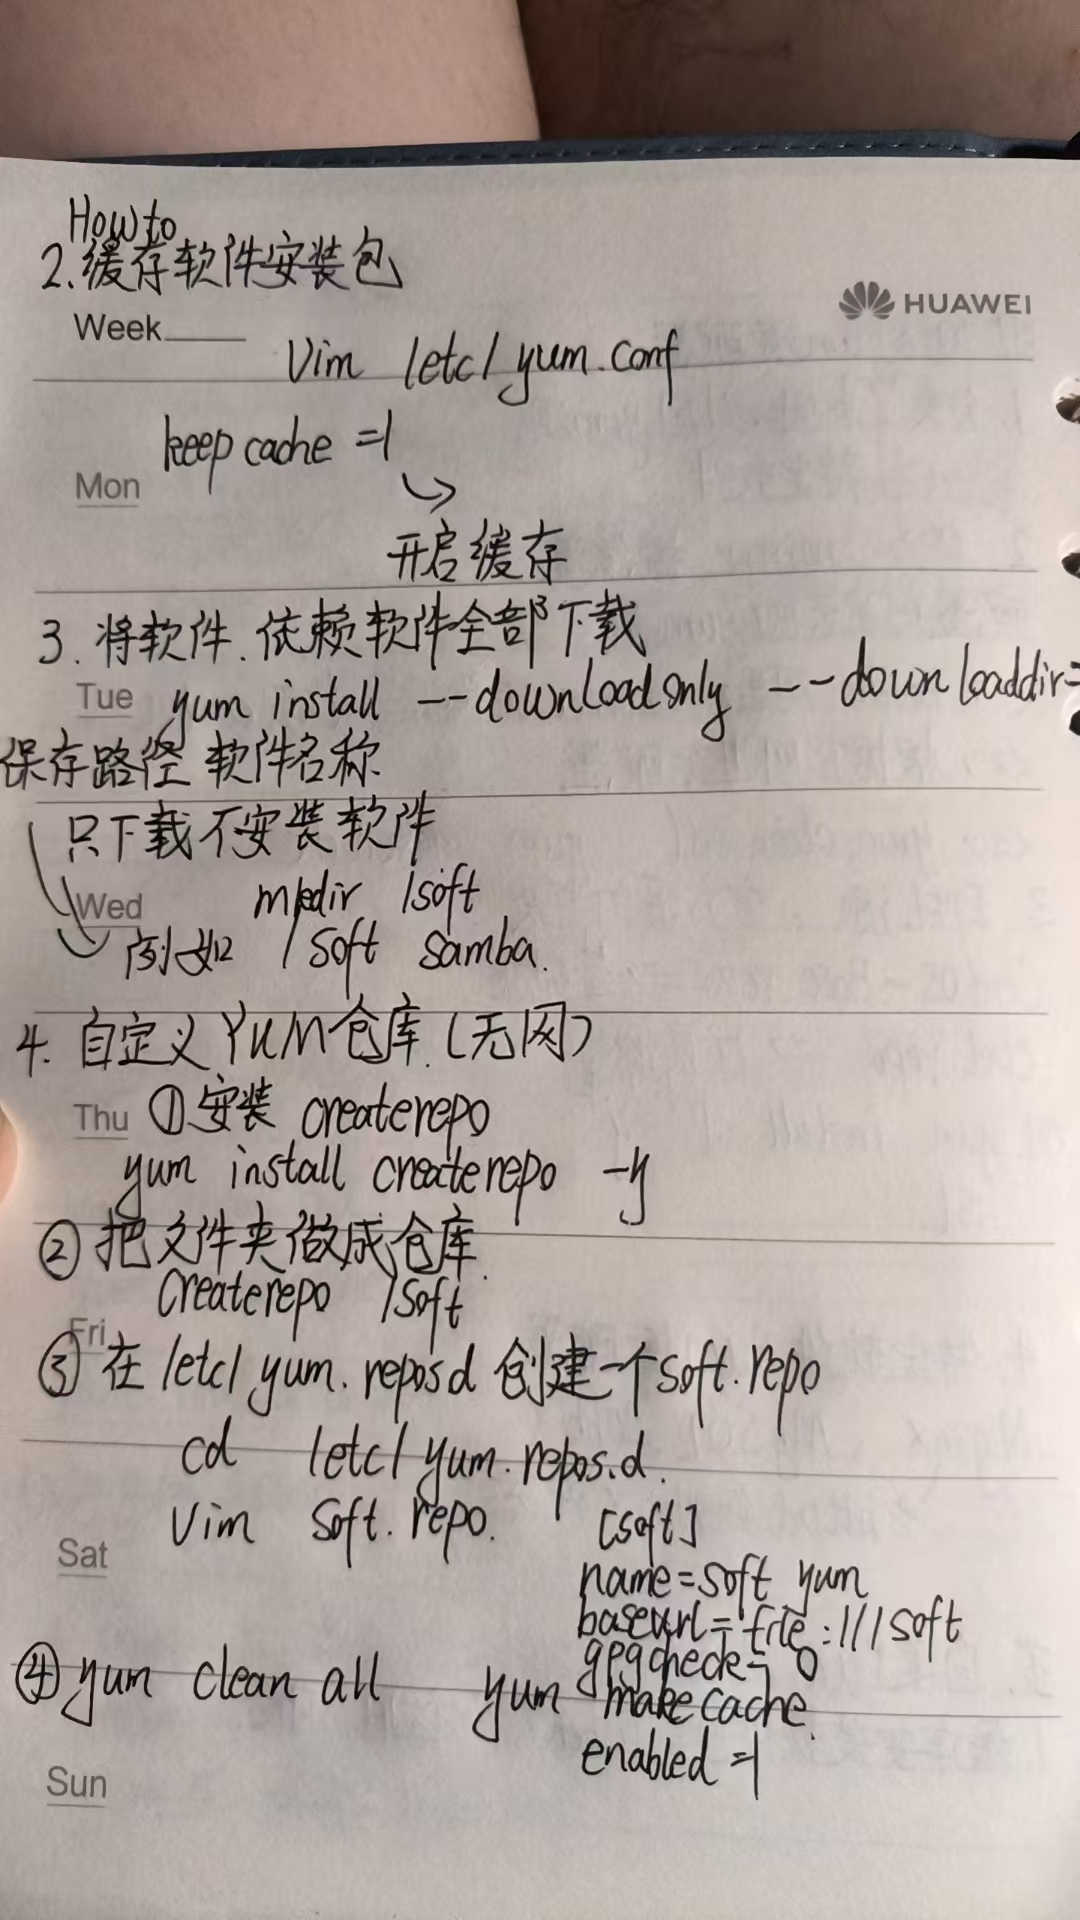 How to
2.缓存软件安装包
HUAWEI
Week
Vim /etc/yum.conf
keepcache=1
Mon
开启缓存
3.将软件.依赖软件全部下载
Tue yum install --downloadonly --downloaddir=
保存路径 软件名称
只下载不安装软件
Wed mkdir /soft
例如 /soft samba.
4.自定义YUM仓库(无网)
Thu ①安装 createrepo
yum install createrepo -y
②把文件夹做成仓库.
createrepo /soft
Fri
③在/etc/yum.reposd创建一个soft.repo
cd /etc/yum.repos.d.
Vim soft.repo. [soft]
Sat
name=soft yum
baseurl=file:///soft
gpgcheck=0
④yum clean all yum makecache.
enabled=1
Sun